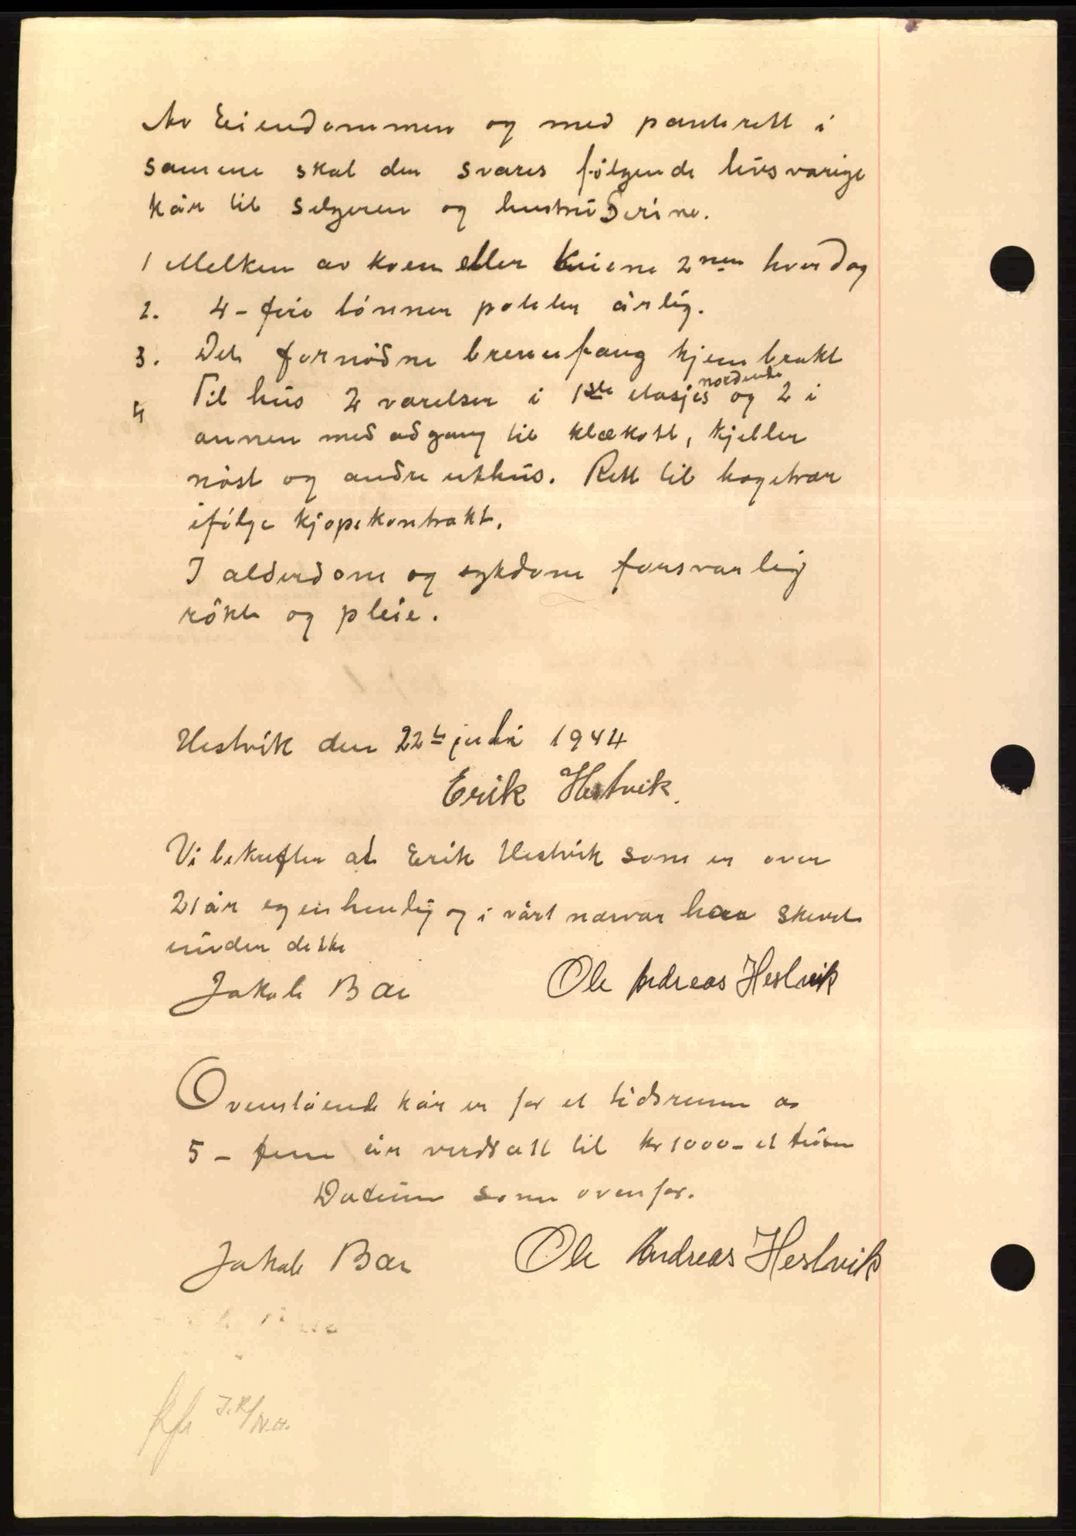 Av Eiendommen og med panterett i
samme skal der svares følgende livsvarige
kår til selgeren og hustru Serine.
1 Melken av kuen eller kuiene 2nen hverdag
2. 4 - fire tønner poteter årlig.
3. Det fornødne brennfang hjembrakt
4 Til hus 2 værelser i 1ste etasjes nordende og 2 i
annen med adgang til klækott, kjeller
nøst og andre uthus. Rett til hagetrær
ifølge kjøpekontrakt.
I alderdom og sykdom forsvarlig
røkt og pleie.
Hestvik den 22 juli 1944
Erik Hestvik.
Vi bekrefter at Erik Hestvik som er over
21 år egenhendig og i vårt nærvær har skrevet
under dette
Jakob Bae
Ole Andreas Hestvik
Ovenstående kår er for et tidsrum av
5 - fem år verdsatt til kr 1000 - et tusen
Datum som ovenfor.
Jakob Bae
Ole Andreas Hestvik